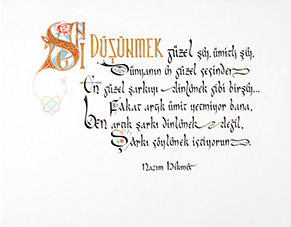 Sİ DÜŞÜNMEK güzel şey, ümitli şey,
Dünyanın en güzel sesinden
En güzel şarkıyı dinlemek gibi birşey...
Fakat artık ümit yetmiyor bana,
Ben artık şarkı dinlemek değil,
Şarkı söylemek istiyorum
Nazım Hikmet